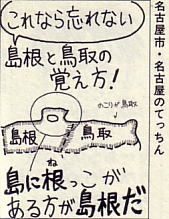 これなら忘れない
島根と鳥取の
覚え方!
のこりが鳥取
島根
鳥取
ね
島に根っこが
ある方が島根だ
名古屋市・名古屋のてっちん